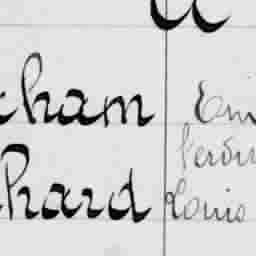 cham Em
Ferdin
chard Louis